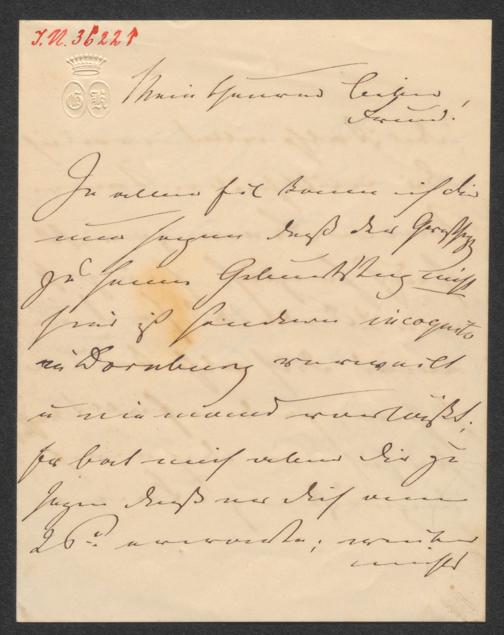 I.N. 36221
Mein theurer lieber
Freund!
In aller Eil kann ich dir
nur sagen daß der
zu seinem Geburtstag nicht
hier ist sondern incognito
in Dornburg verweilt
u niemand
er bat mich aber dir zu
sagen daß er dich am
26ⁿ erwarte;